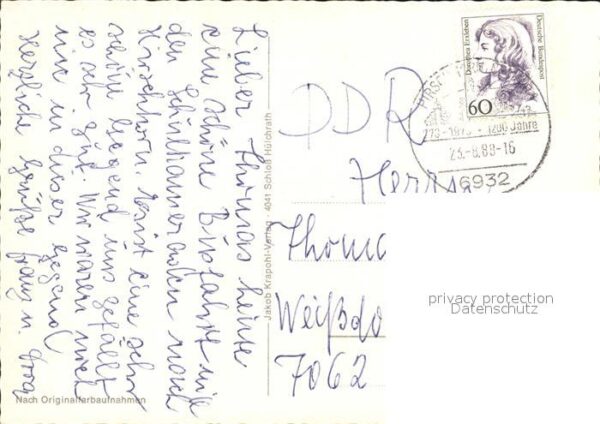 Lieber Thomas heute
eine schöne Busfahrt mit
den Schulkameraden nach
Hirschhorn. Es ist eine sehr
schöne Gegend uns gefällt
es sehr gut. Wir waren noch
nie in dieser Gegend
Herzliche Grüße Franz u.
Nach Originalfarbaufnahmen
Jakob Krapohl-Verlag · 4041 Schloß Hülchrath
Dorothea Erxleben
Deutsche Bundespost
60
HIRSCH
773-1973 · 1200 Jahre
23.-8.88-16
6932
DDR
Herrn
Thoma
Weißdo
7062
privacy protection
Datenschutz